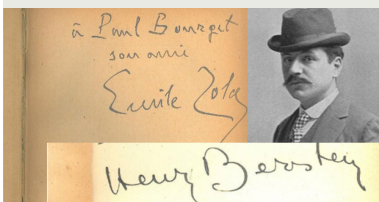 à Paul Bourget
son ami
Emile Zola
Henry Bernstein